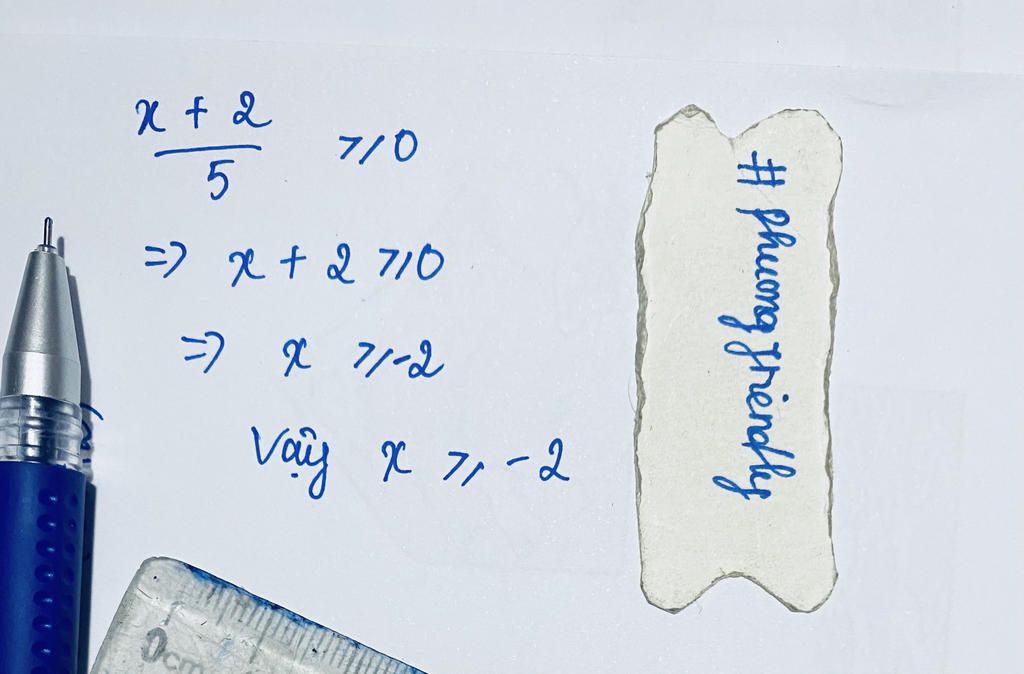 x + 2
5
≥ 0
=> x + 2 ≥ 0
=> x ≥ -2
Vậy x ≥ -2
#phuongfriendly
0cm